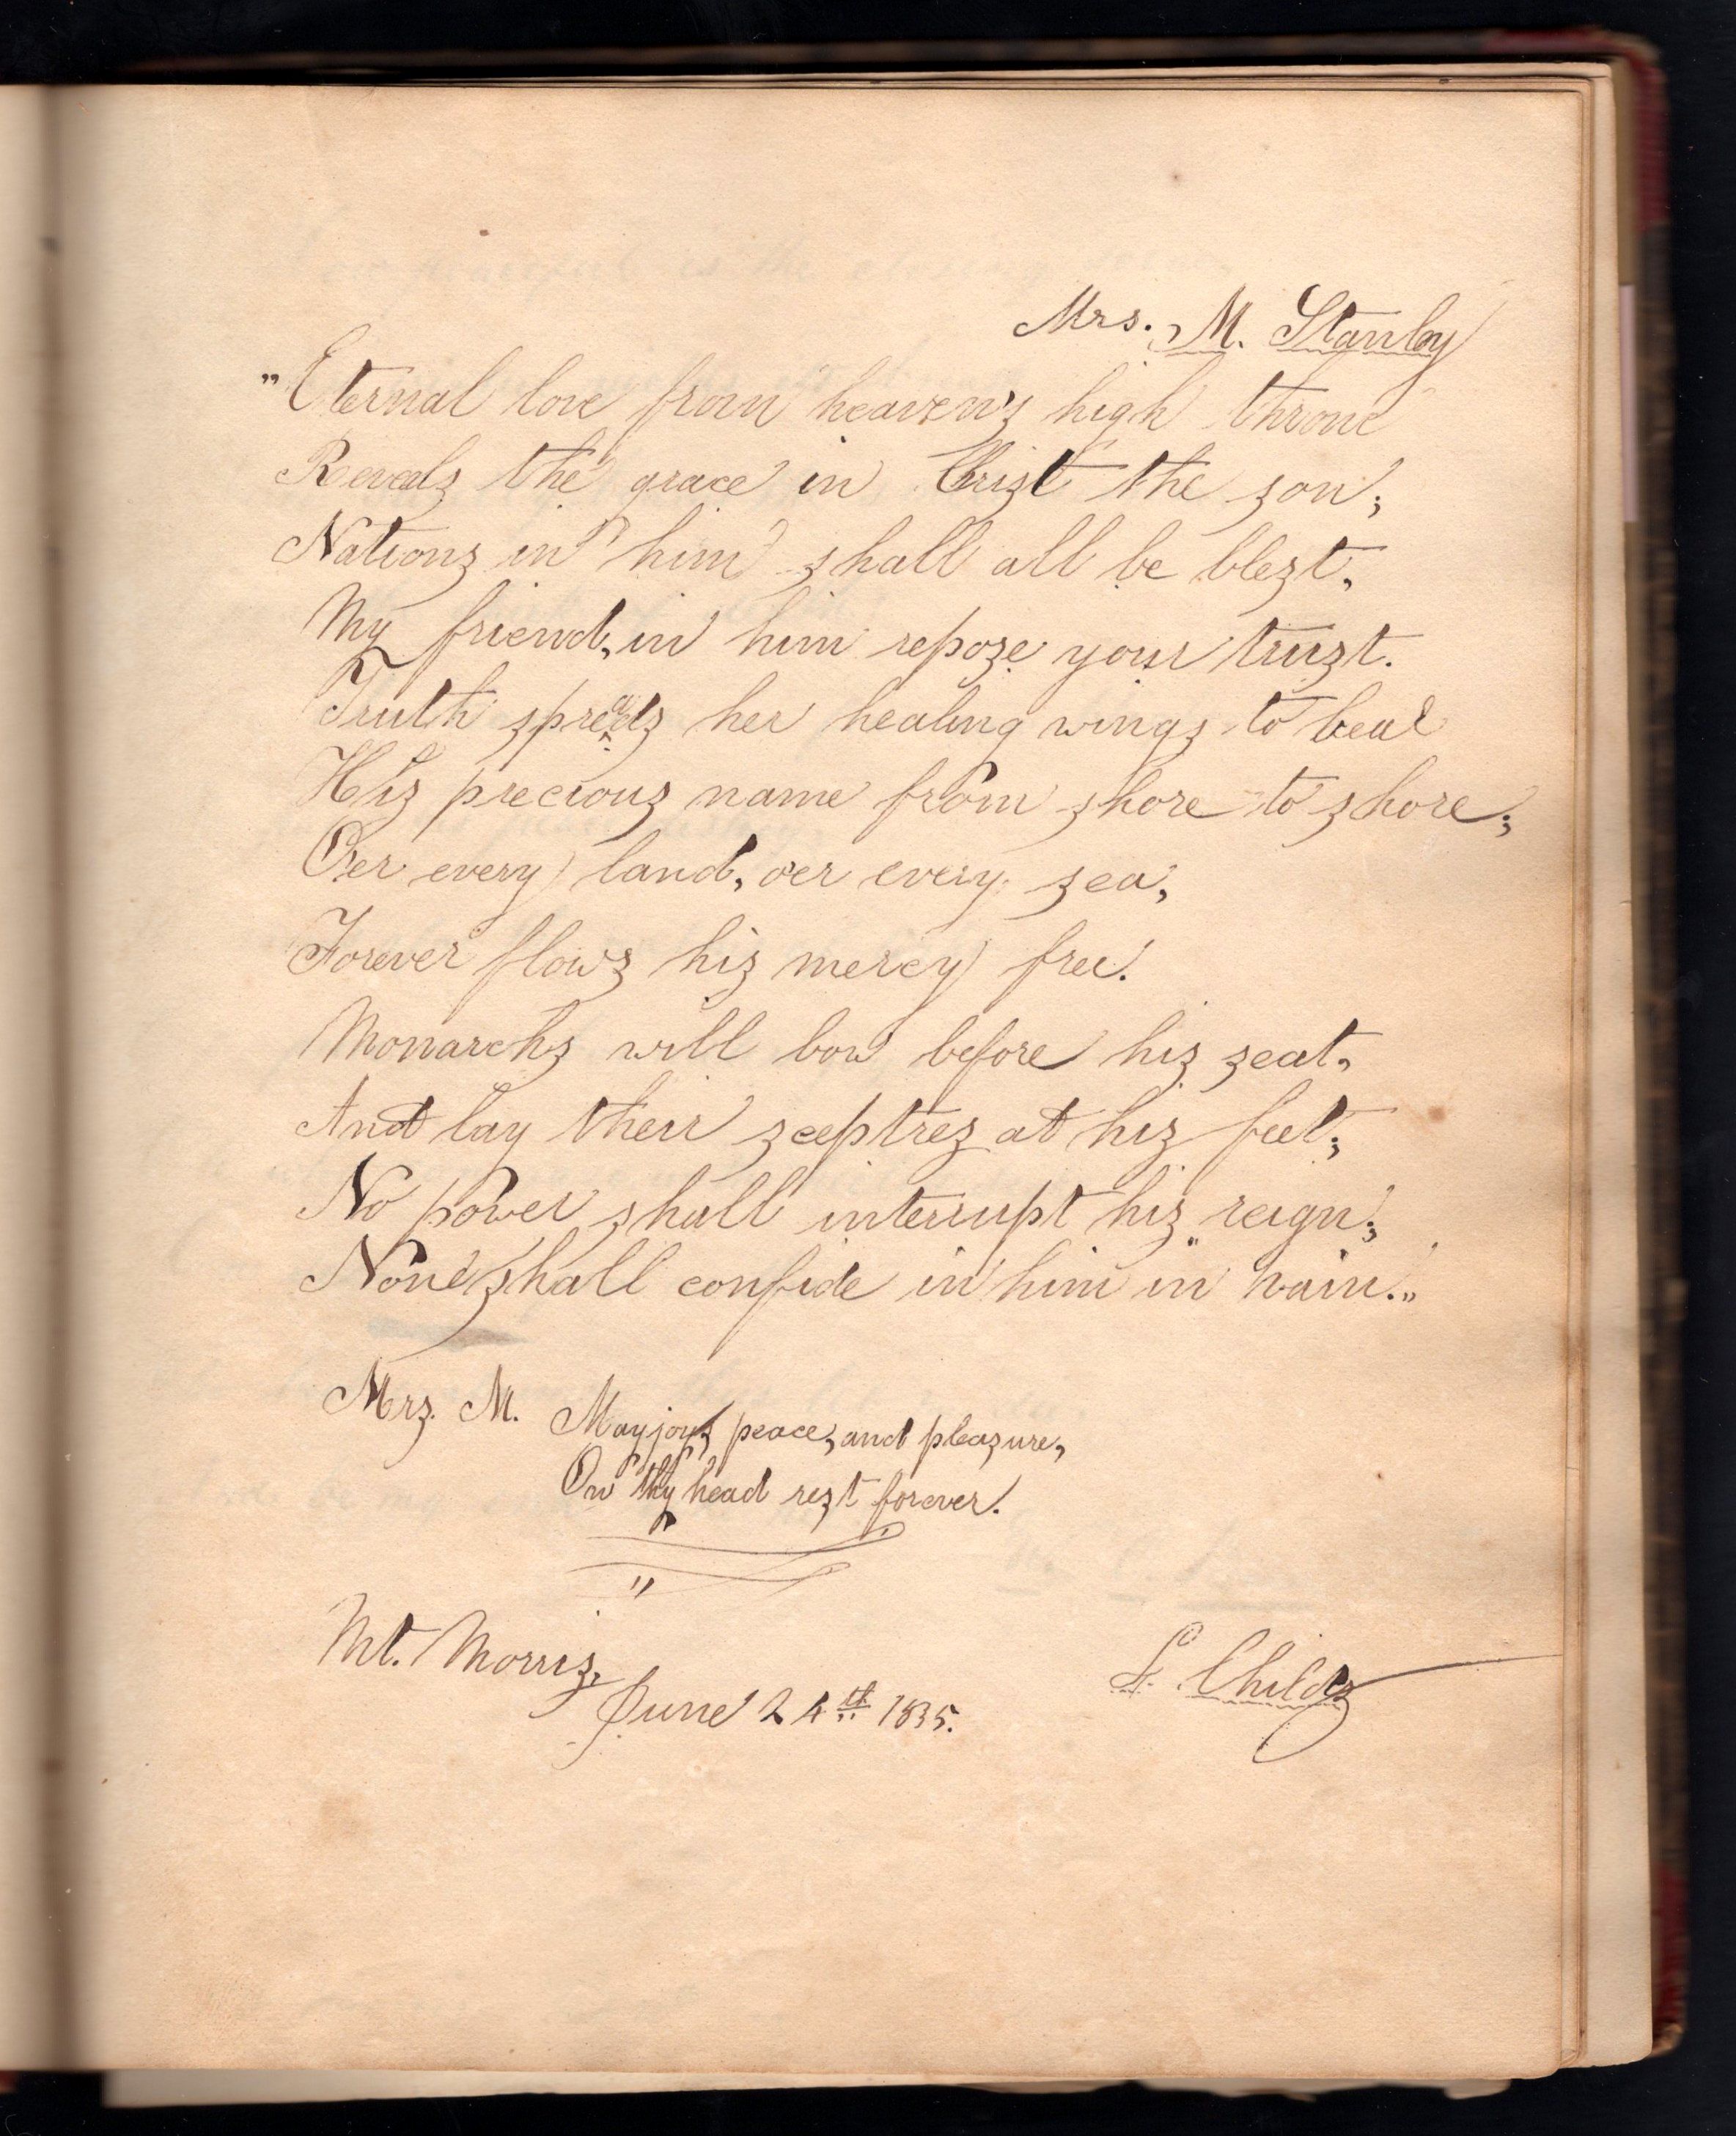 Mrs. M. Stanley
"Eternal love from heaven's high throne
Reveals the grace in Crist the son;
Nations in him shall all be blest,
My friend, in him repose your trust.
Truth spreads her healing wings to bear
His precious name from shore to shore;
O'er every land, o'er every sea,
Forever flows his mercy free.
Monarchs will bow before his seat,
And lay their sceptres at his feet;
No power shall interrupt his reign;
None shall confide in him in vain."
Mrs. M. May joys, peace, and pleasure,
On thy head rest forever.
Mt. Morris,
June 24th 1835.
L. Childs